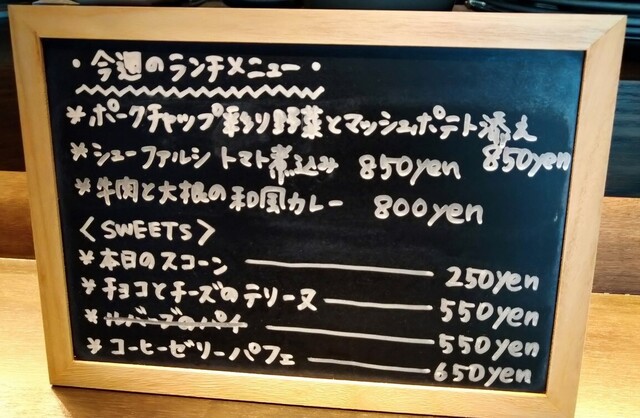 ・今週のランチメニュー・
*ポークチャップ彩り野菜とマッシュポテト添え 850yen
*シューファルシトマト煮込み 850yen
*牛肉と大根の和風カレー 800yen
〈SWEETS〉
*本日のスコーン 250yen
*チョコとチーズのテリーヌ 550yen
*ルバーブのパイ 550yen
*コーヒーゼリーパフェ 650yen